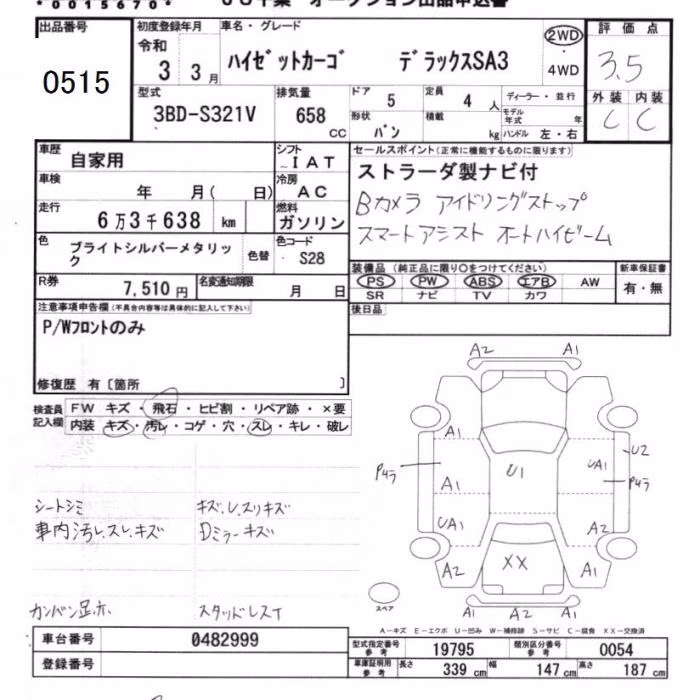 *0015670*
出品番号 初度登録年月 車名・グレード 2WD 評価点
令和 ハイゼットカーゴ デラックスSA3 ・ 3.5
0515 3 3月 4WD 外装 内装
型式 排気量 ドア 5 定員 4 人 ディーラー・並行 C C
3BD-S321V 658 CC 形状 バン 積載 kg モデル年式 年
ハンドル 左・右
車歴 自家用 シフト IAT セールスポイント(正常に機能するものに限ります)
車検 年 月( 日) 冷房 AC ストラーダ製ナビ付
走行 6万3千638 km 燃料 ガソリン Bカメラ アイドリングストップ
色 ブライトシルバーメタリック 色替 色コード S28 スマートアシスト オートハイビーム
R券 7,510円 名変通知期限 月 日 装備品(純正品に限り○をつけてください) 新車保証書
PS PW ABS エアB AW 有・無
SR ナビ TV カワ
注意事項申告欄(不具合内容等は具体的に記入して下さい) 後日品
P/Wフロントのみ
修復歴 有〔箇所 〕
検査員記入欄 FW キズ・飛石・ヒビ割・リペア跡・×要
内装 キズ・汚レ・コゲ・穴・スレ・キレ・破レ
A2 A1
A1 U2
P4ラ U1 UA1 P4ラ
A1
UA1 A2
A2 XX A1
A1 A2 A1
スペア
シートシミ キズ.U.スリキズ
車内汚レ.スレ.キズ Dミラーキズ
スタッドレスT
A-キズ E-エクボ U-凹み W-補修跡 S-サビ C-腐食 XX-交換済
車台番号 0482999 型式指定番号 参考 19795 類別区分番号 参考 0054
登録番号 車庫証明用 参考 長さ 339 cm 幅 147 cm 高さ 187 cm